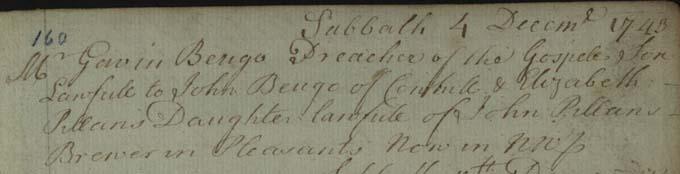 Sabbath 4 Decmr 1743
160
Mr Gavin Beugo Preacher of the Gospel & Son
Lawfule to John Beugo of & Elizabeth
Pillans Daughter lawfule of John Pillans
Brewer in Pleasants Now in